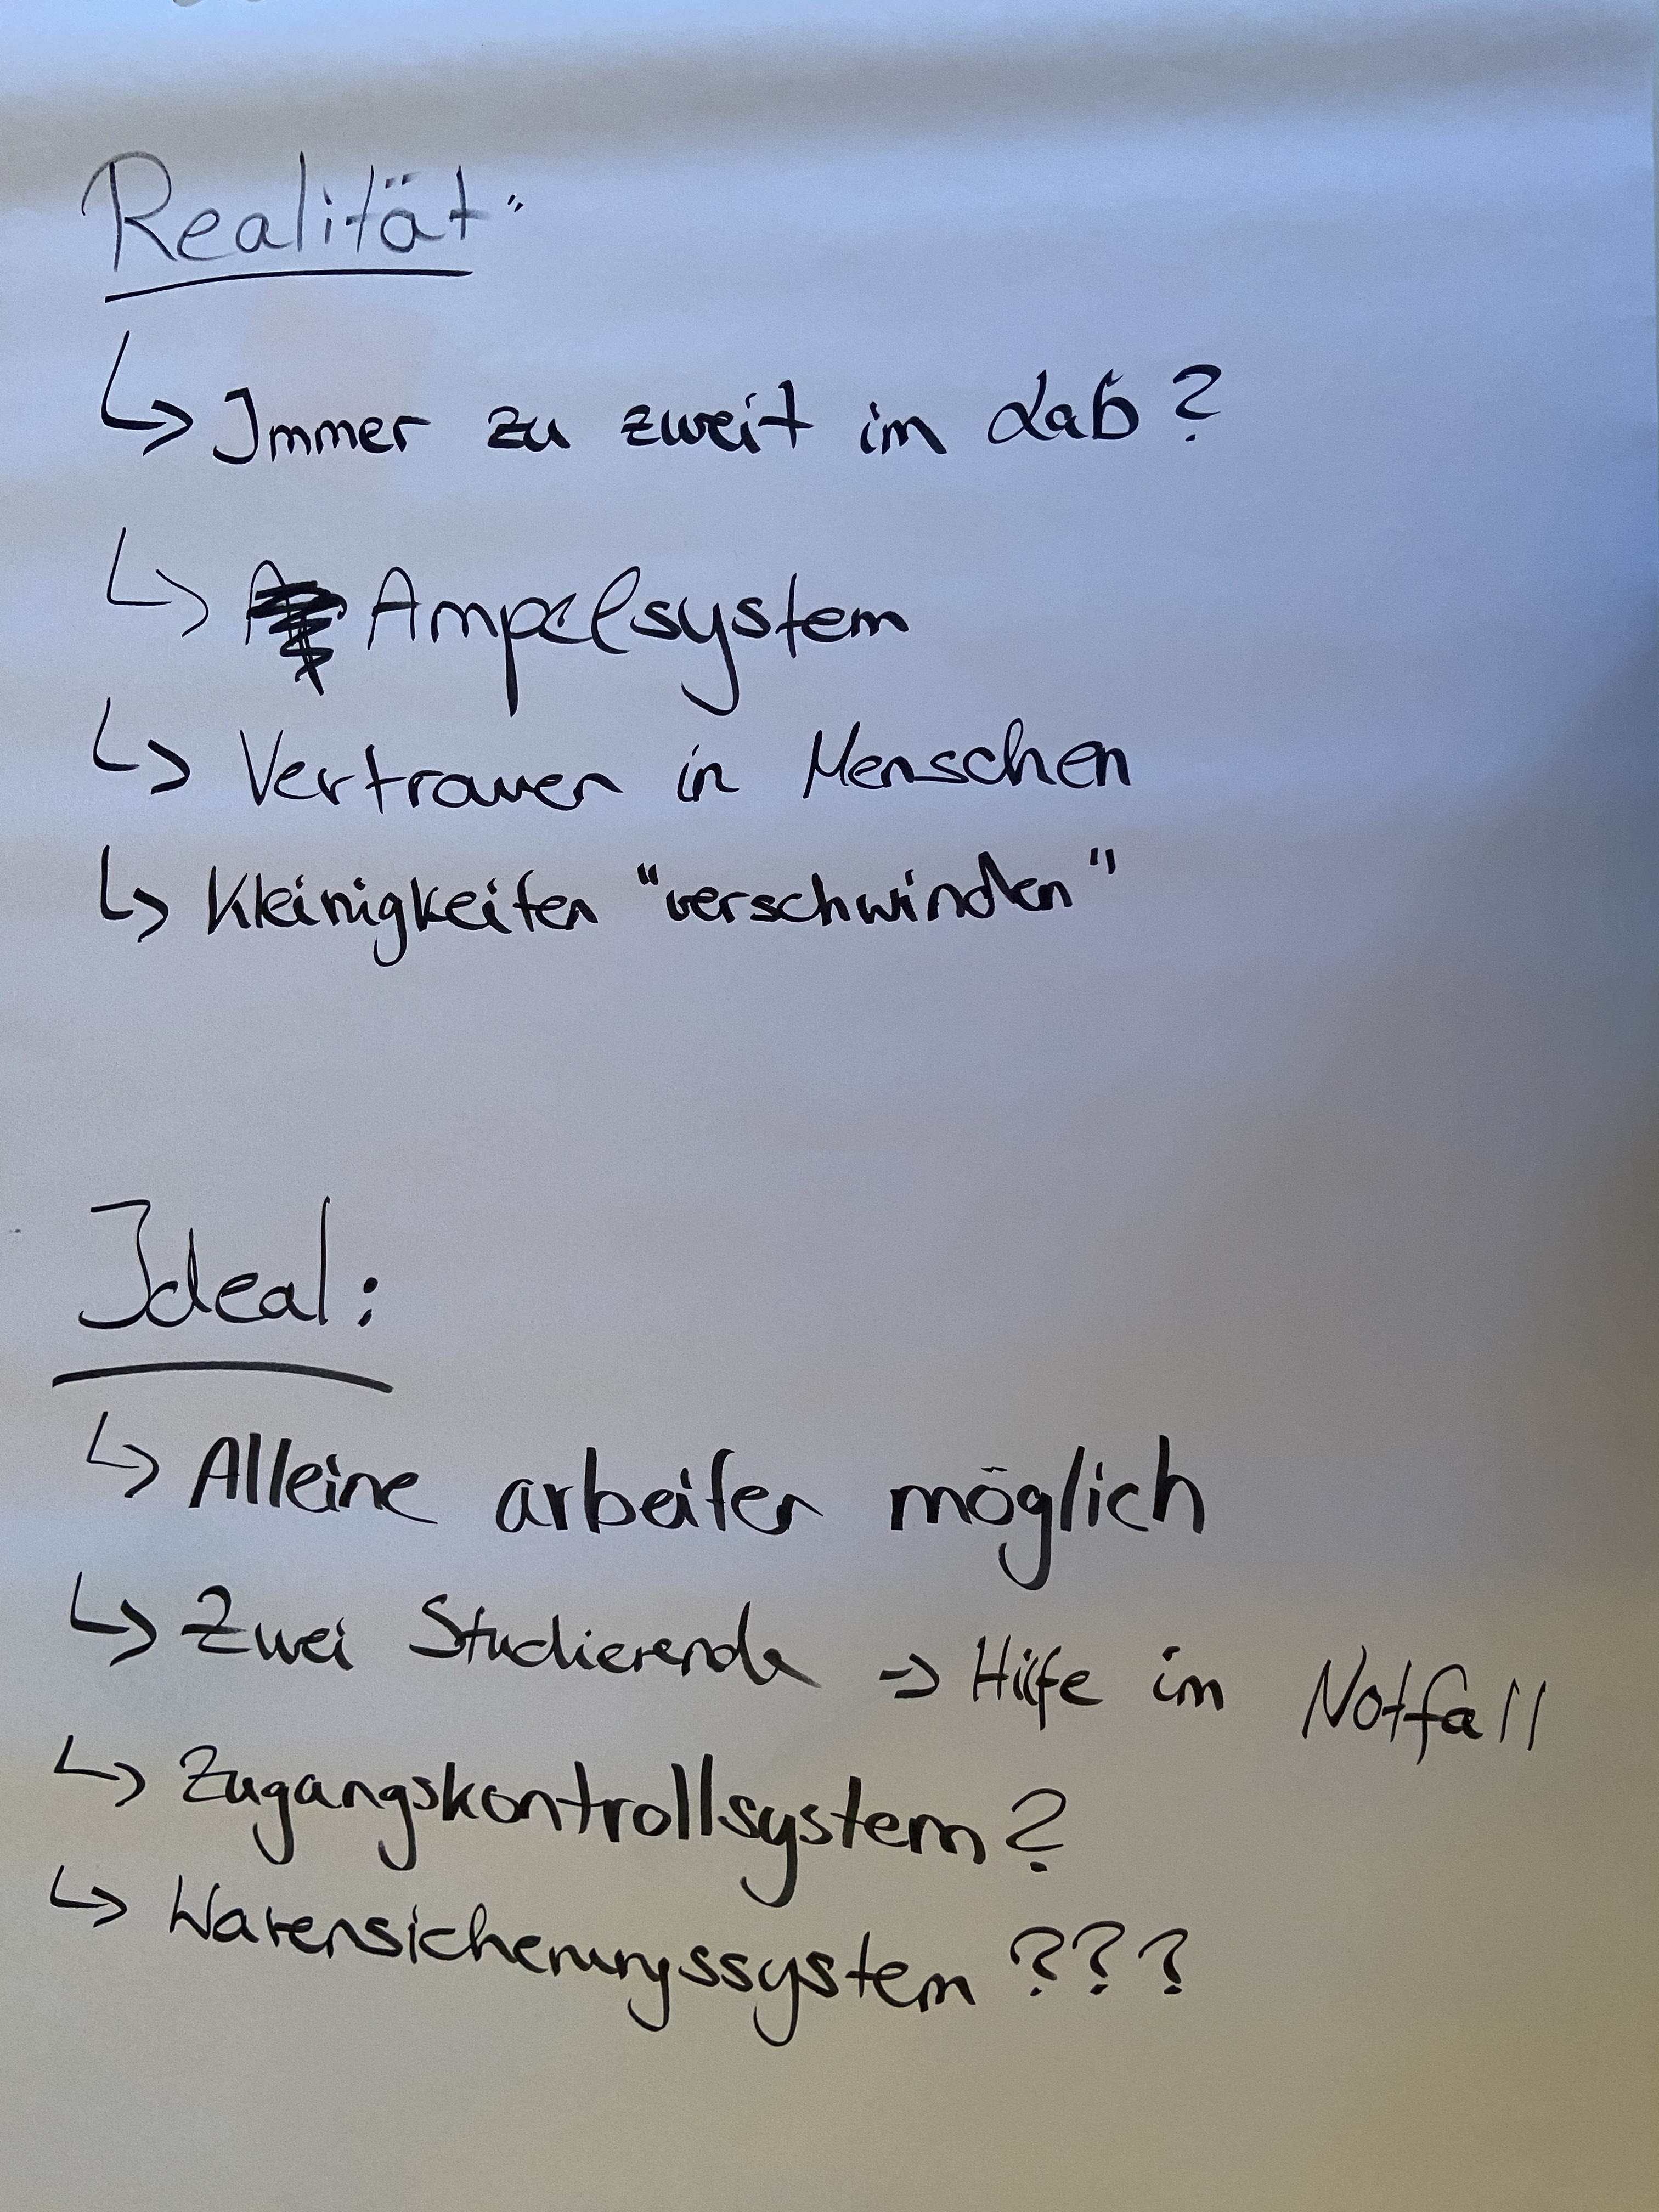 Realität"
↳ Immer zu zweit im Lab?
↳ Ampelsystem
↳ Vertrauen in Menschen
↳ Kleinigkeiten "verschwinden"
Ideal:
↳ Alleine arbeiten möglich
↳ Zwei Studierende → Hilfe im Notfall
↳ Zugangskontrollsystem?
↳ Warensicherungssystem ???